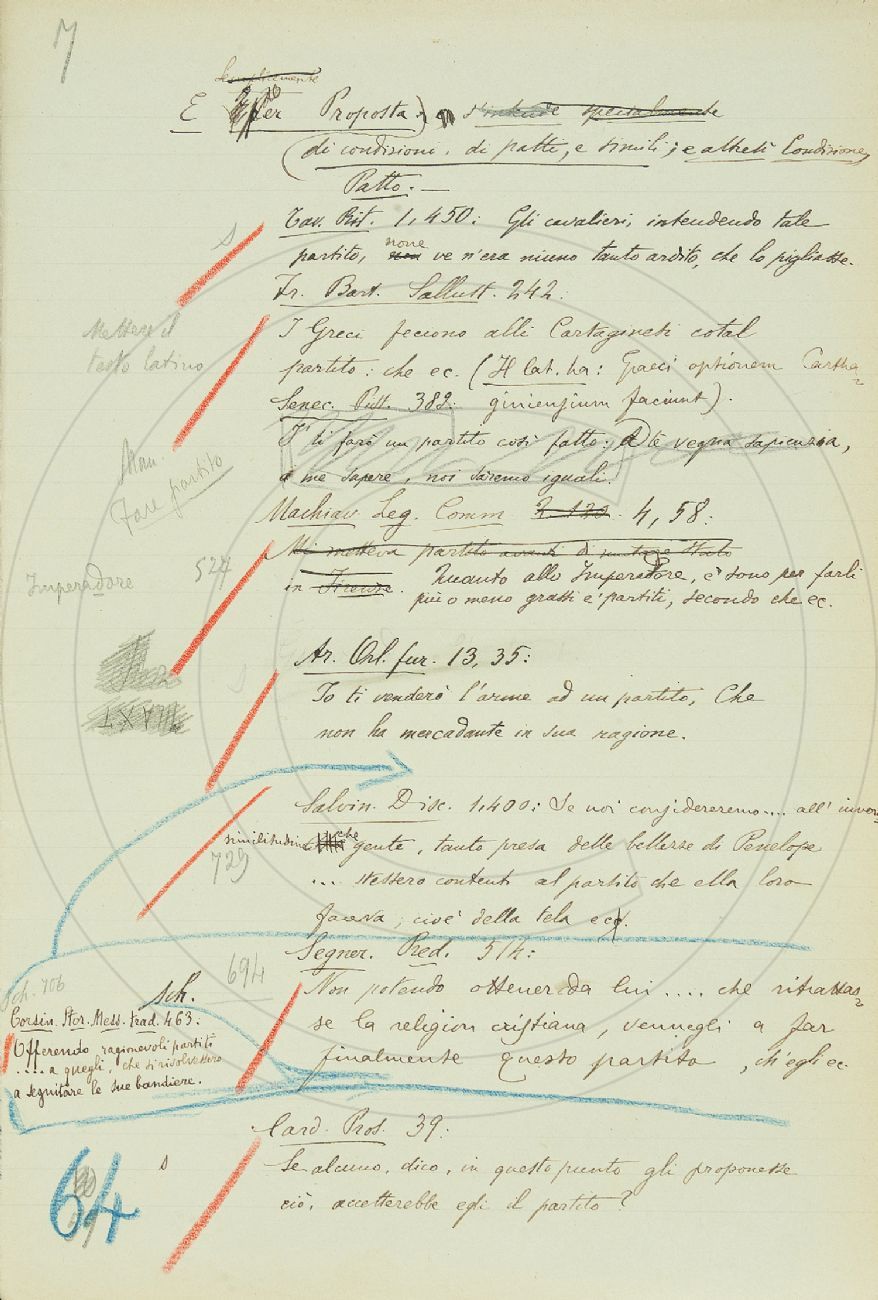 7
Semplicemente
E per Proposta) s'intende specialmente
(di condizioni, di patti, e simili; e altresì Condizione,
Patto. —
s
Tav. Rit. 1, 450: Gli cavalieri, intendendo tale
partito, none ve n'era niuno tanto ardito, che lo pigliasse.
Fr. Bart. Sallust. 242:
Mettere il
testo latino
I Greci feciono alli Cartaginesi cotal
partito: che ec. (Il lat. ha: Graeci optionem Cartha-
Senec. Pist. 382: giniensium faciunt).
Man.
Fare partito
I' ti farò un partito così fatto: Se vegna sapienzia,
a me sapere, noi saremo iguali.
Machiav. Leg. Comm. 4, 58:
Mi metteva partito avanti di mutare Stato
in Firenze. Quanto allo Imperadore, e' sono per farli
più o meno grassi e' partiti, secondo che ec.
Imperadore
524
Ar. Orl. fur. 13, 35:
s
Io ti venderò l'arme ad un partito, Che
non ha mercadante in sua ragione.
Salvin. Disc. 1, 400: Se noi considereremo.... all'
similitudine che gente, tanto presa delle bellezze di Penelope
729
... stessero contenti al partito che ella loro
faceva, cioè della tela ec.
Segner. Pred. 514:
694
Non potendo ottener da lui .... che ritrattas-
se la religion cristiana, vennegli a far
finalmente questo partito, ch'egli ec.
Sch. 706
sch.
Corsin. Stor. Mess. trad. 463:
Offerendo ragionevoli partiti
.... a quegli, che si risolvessero
a seguitare le sue bandiere.
Card. Pros. 39:
s
Se alcuno, dico, in questo punto gli proponesse
ciò, accetterebbe egli il partito?
64